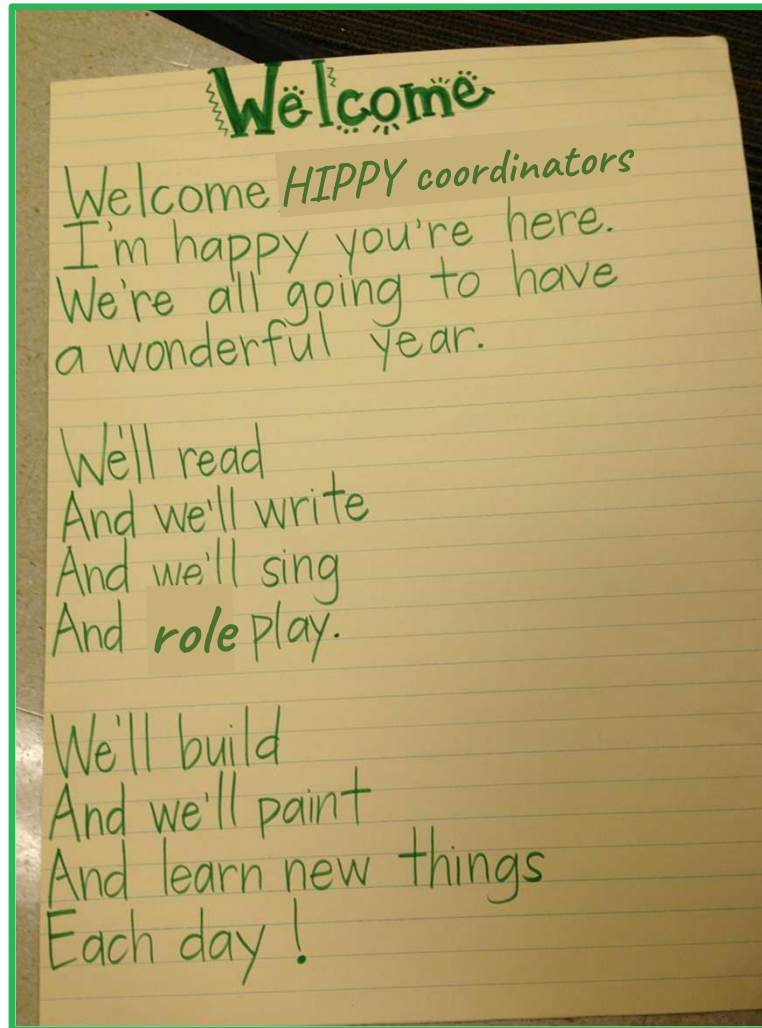 Welcome
Welcome HIPPY coordinators
I'm happy you're here.
We're all going to have
a wonderful year.
We'll read
And we'll write
And we'll sing
And role play.
We'll build
And we'll paint
And learn new things
Each day!